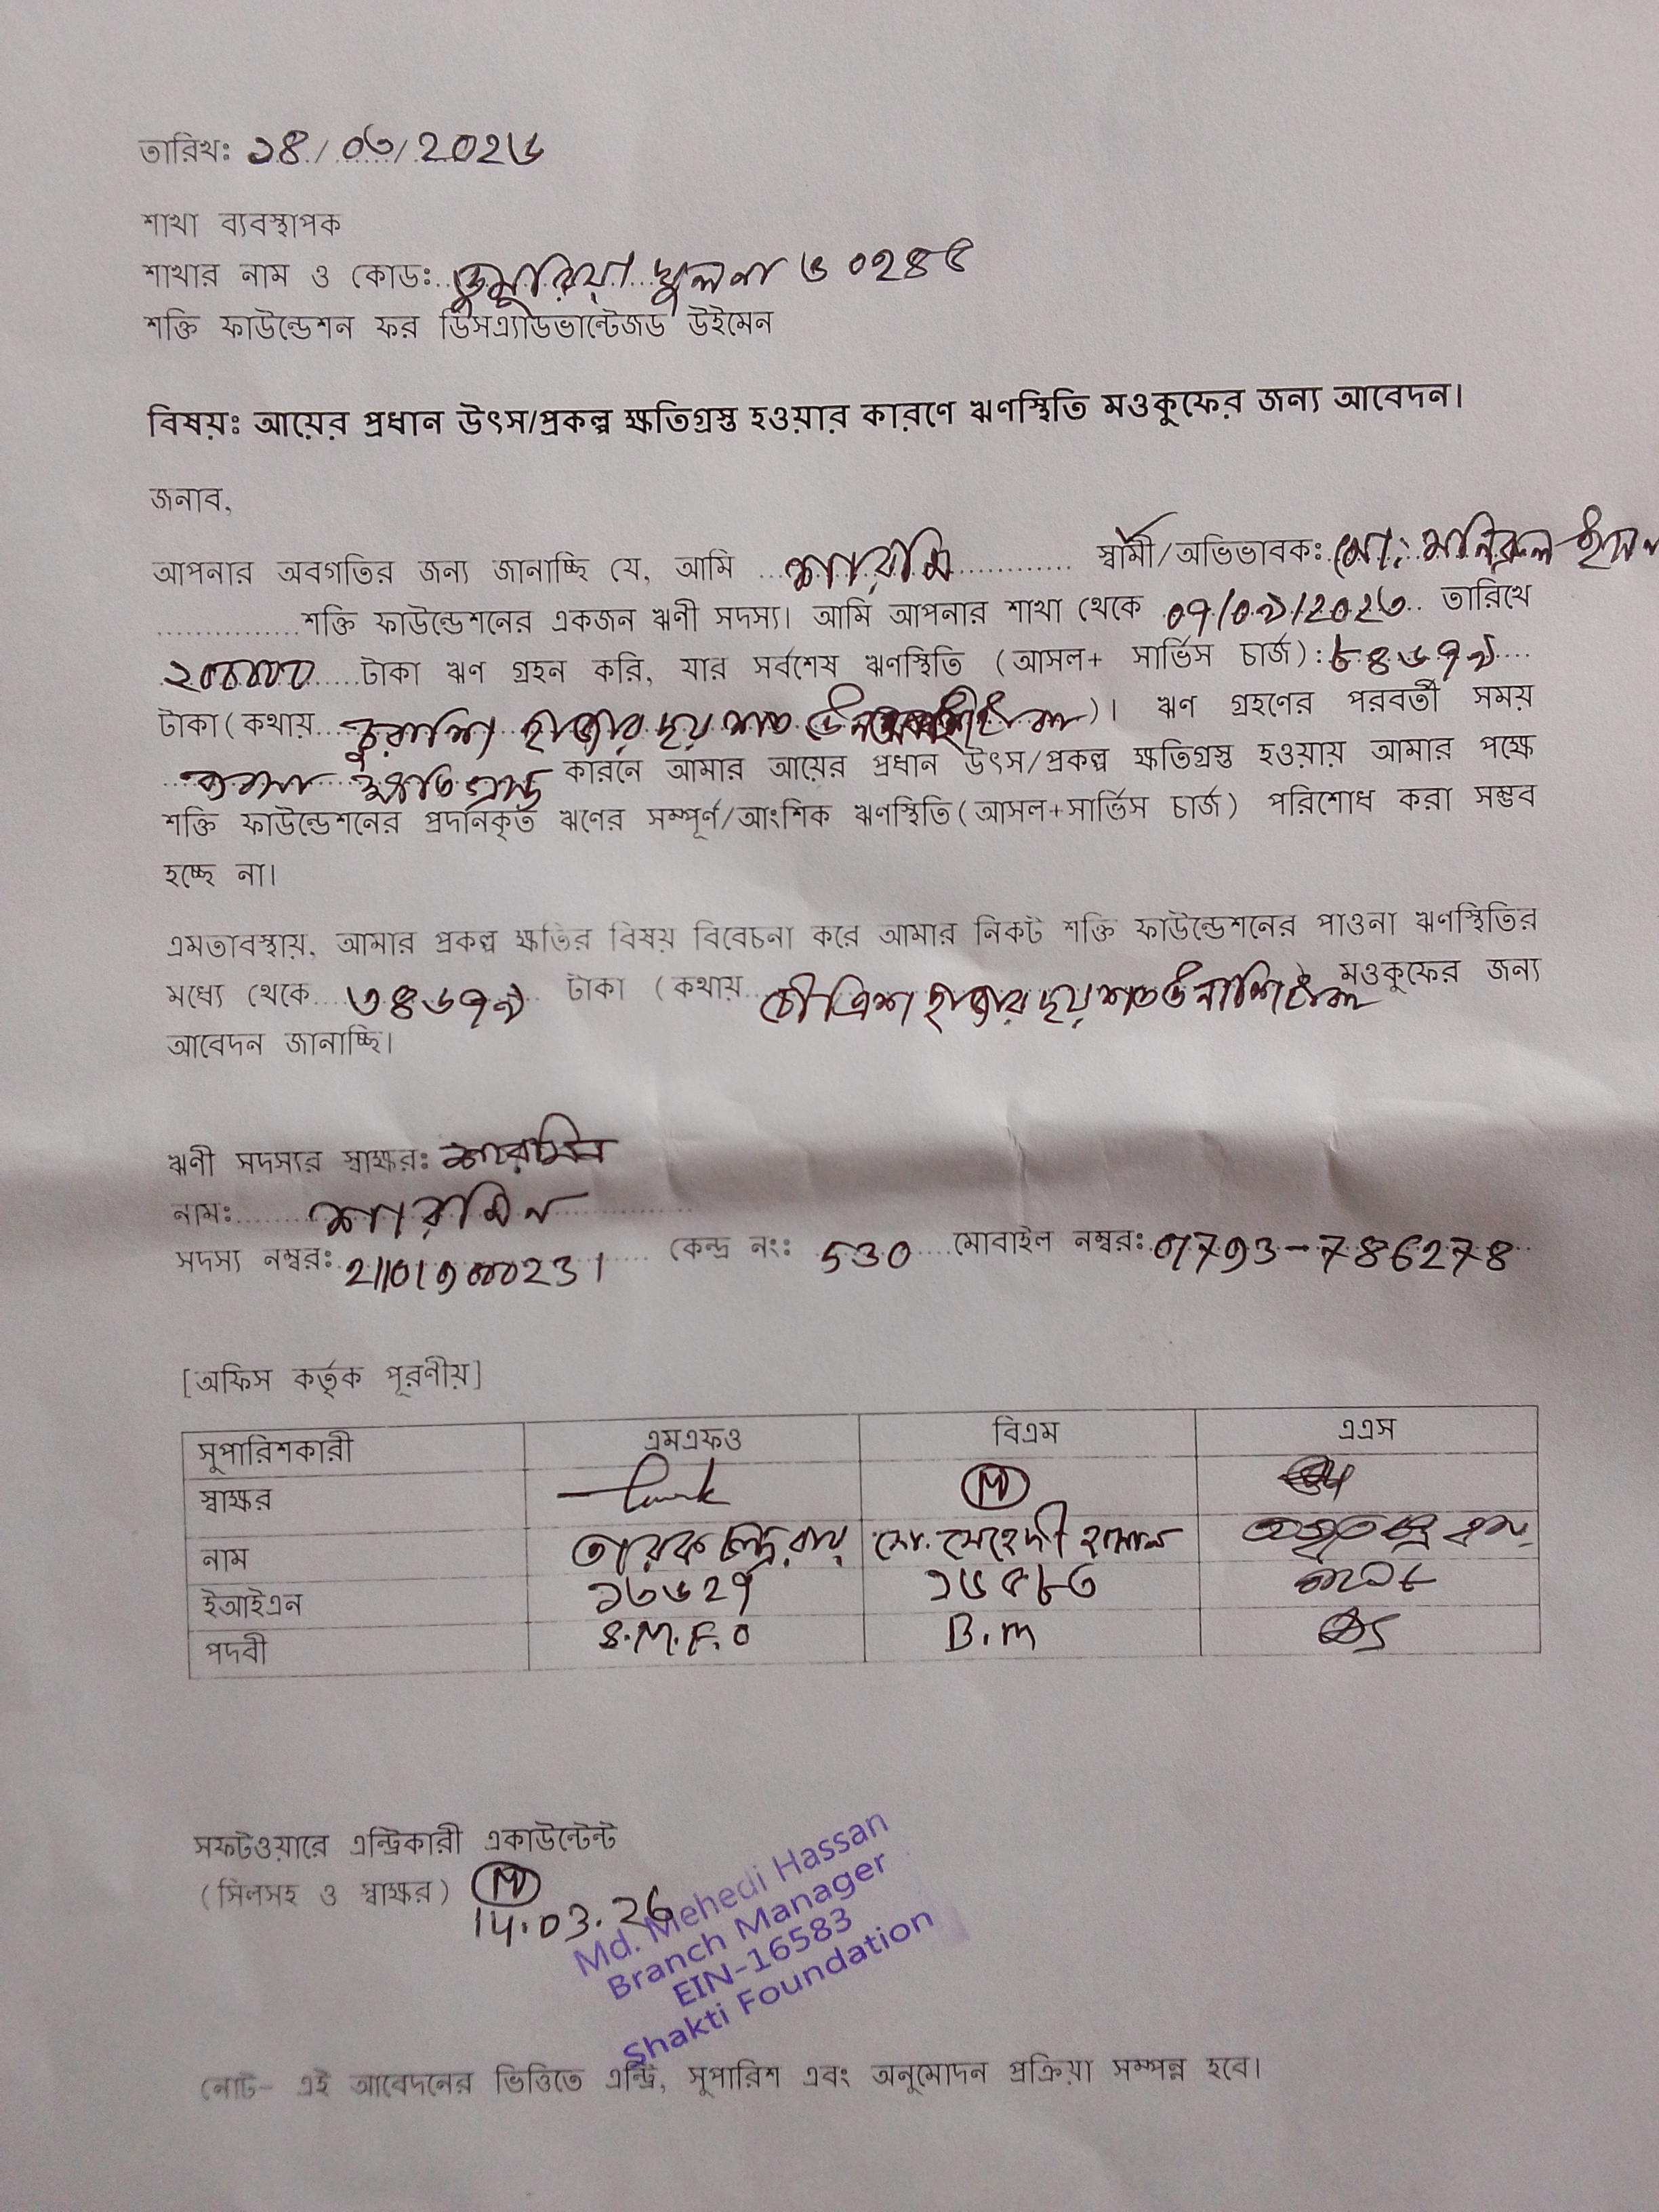 তারিখঃ ১৪/০৩/২০২৬
শাখা ব্যবস্থাপক
শাখার নাম ও কোডঃ ডুমুরিয়া খুলনা ও ০২৪৫
শক্তি ফাউন্ডেশন ফর ডিসএ্যাডভান্টেজড উইমেন
বিষয়ঃ আয়ের প্রধান উৎস/প্রকল্প ক্ষতিগ্রস্ত হওয়ার কারণে ঋণস্থিতি মওকুফের জন্য আবেদন।
জনাব,
আপনার অবগতির জন্য জানাচ্ছি যে, আমি শারমি স্বামী/অভিভাবকঃ মোঃ মনিরুল
শক্তি ফাউন্ডেশনের একজন ঋণী সদস্য। আমি আপনার শাখা থেকে ০৭/০৯/২০২৩ তারিখে
২০০০০০ টাকা ঋণ গ্রহন করি, যার সর্বশেষ ঋণস্থিতি (আসল+ সার্ভিস চার্জ):৮৪৬৭৯
টাকা(কথায় চুরাশি হাজার ছয় শত )। ঋণ গ্রহণের পরবর্তী সময়
ক্ষতিগ্রস্ত কারনে আমার আয়ের প্রধান উৎস/প্রকল্প ক্ষতিগ্রস্ত হওয়ায় আমার পক্ষে
শক্তি ফাউন্ডেশনের প্রদানকৃত ঋণের সম্পূর্ণ/আংশিক ঋণস্থিতি(আসল+সার্ভিস চার্জ) পরিশোধ করা সম্ভব
হচ্ছে না।
এমতাবস্থায়, আমার প্রকল্প ক্ষতির বিষয় বিবেচনা করে আমার নিকট শক্তি ফাউন্ডেশনের পাওনা ঋণস্থিতির
মধ্যে থেকে ৩৪৬৭৯ টাকা (কথায় চৌত্রিশ হাজার ছয় শত উনাশি টাকা মওকুফের জন্য
আবেদন জানাচ্ছি।
ঋণী সদস্যর স্বাক্ষরঃ শারমিন
নামঃ শারমিন
সদস্য নম্বরঃ কেন্দ্র নংঃ 530 মোবাইল নম্বরঃ 01793-786278
[অফিস কর্তৃক পূরণীয়]
সুপারিশকারী এমএফও বিএম এএস
স্বাক্ষর
নাম তারক চন্দ্র রায় মো. মেহেদী হাসান
ইআইএন ১৩৬২৭ ১৬৫৮৩
পদবী S.M.F.O B.M
সফটওয়ারে এন্ট্রিকারী একাউন্টেন্ট
(সিলসহ ও স্বাক্ষর)
14.03.26
Md. Mehedi Hassan
Branch Manager
EIN-16583
Shakti Foundation
নোট- এই আবেদনের ভিত্তিতে এন্ট্রি, সুপারিশ এবং অনুমোদন প্রক্রিয়া সম্পন্ন হবে।